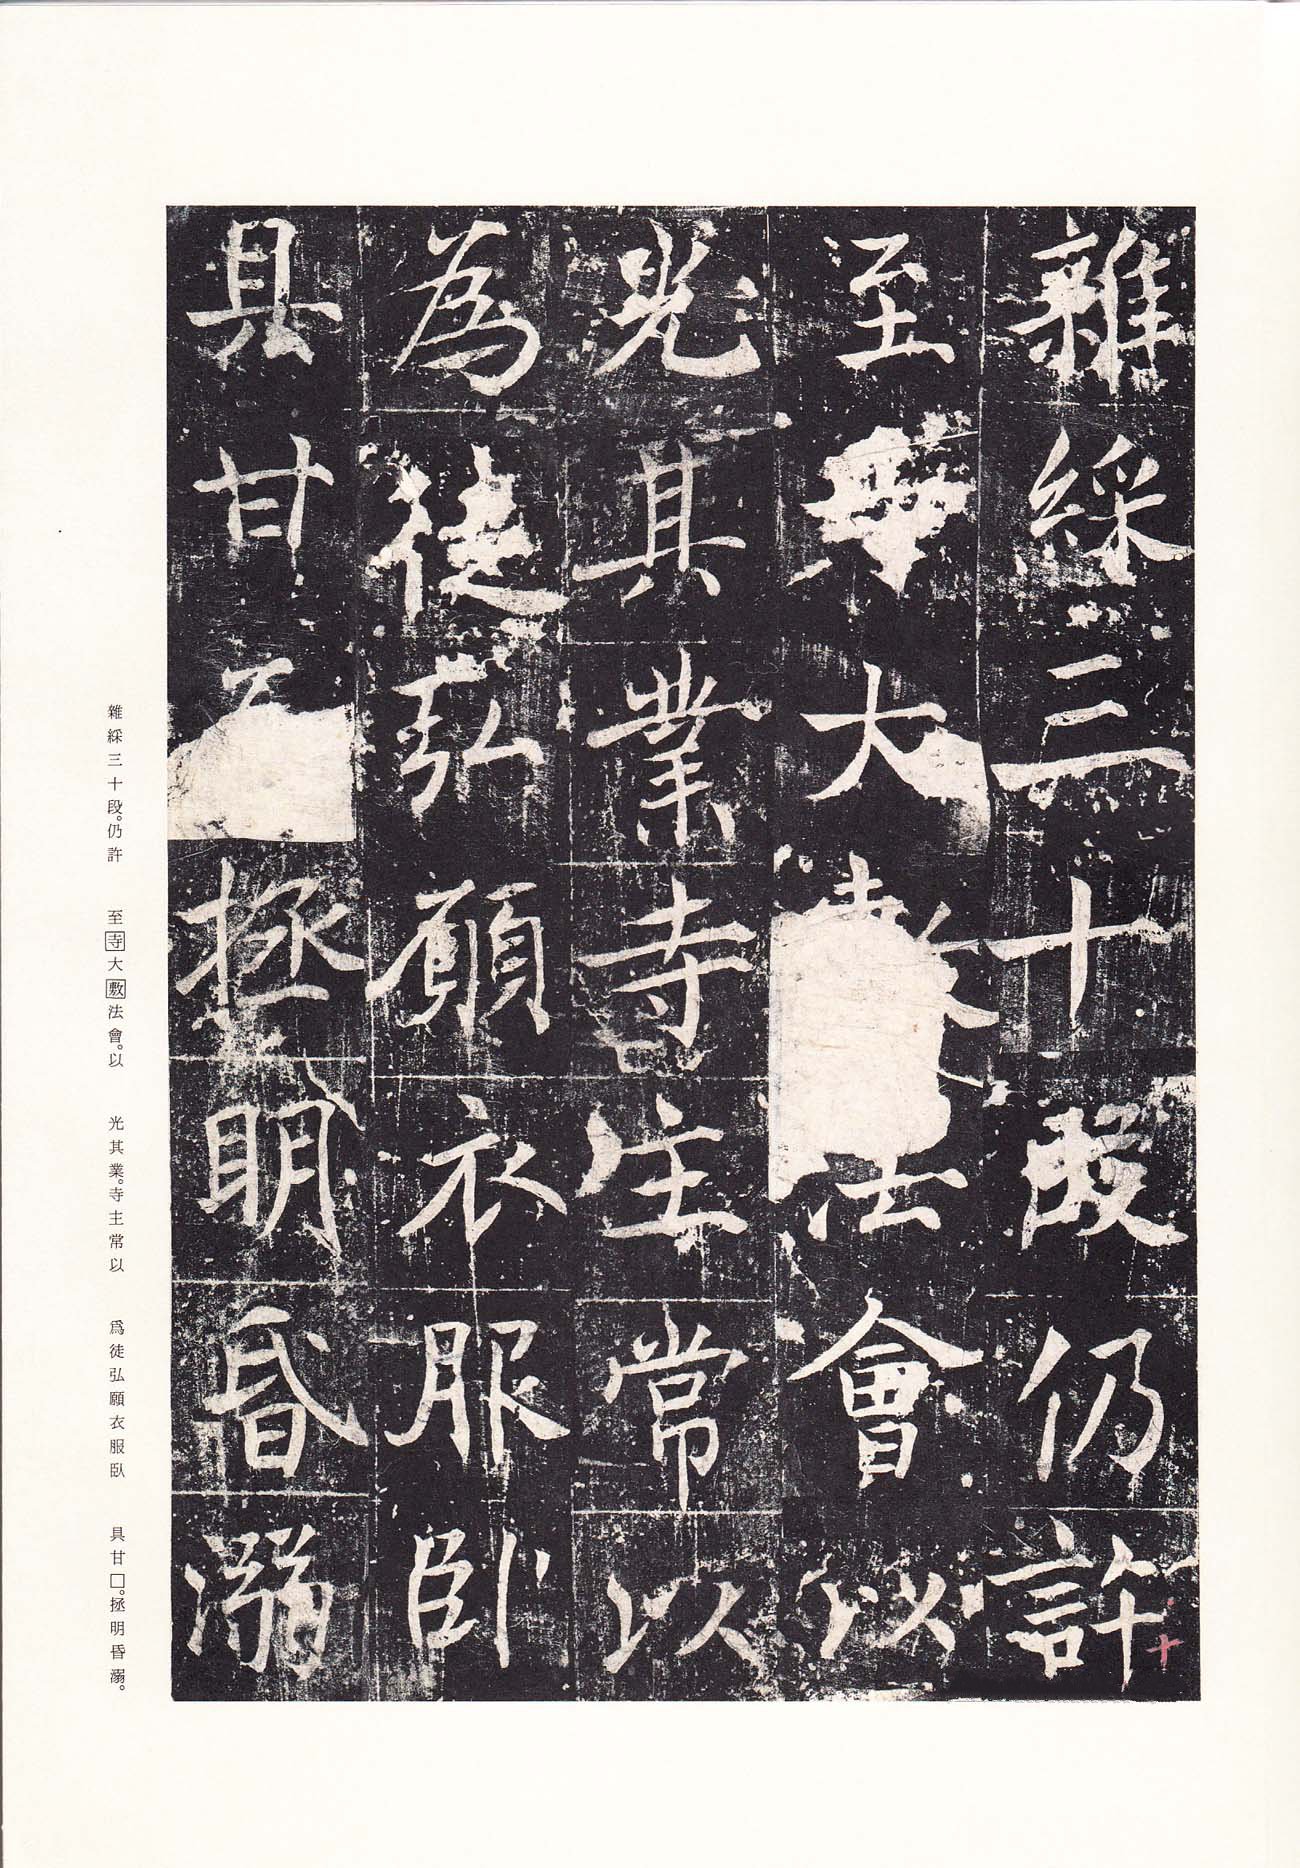 雜綵三十段仍許
至大法會以
光其業寺主常以
為徒弘願衣服臥
具甘拯明昏溺
十
雜綵三十段。仍許　至寺大敷法會。以　光其業。寺主常以　爲徒弘願衣服臥　具甘□。拯明昏溺。